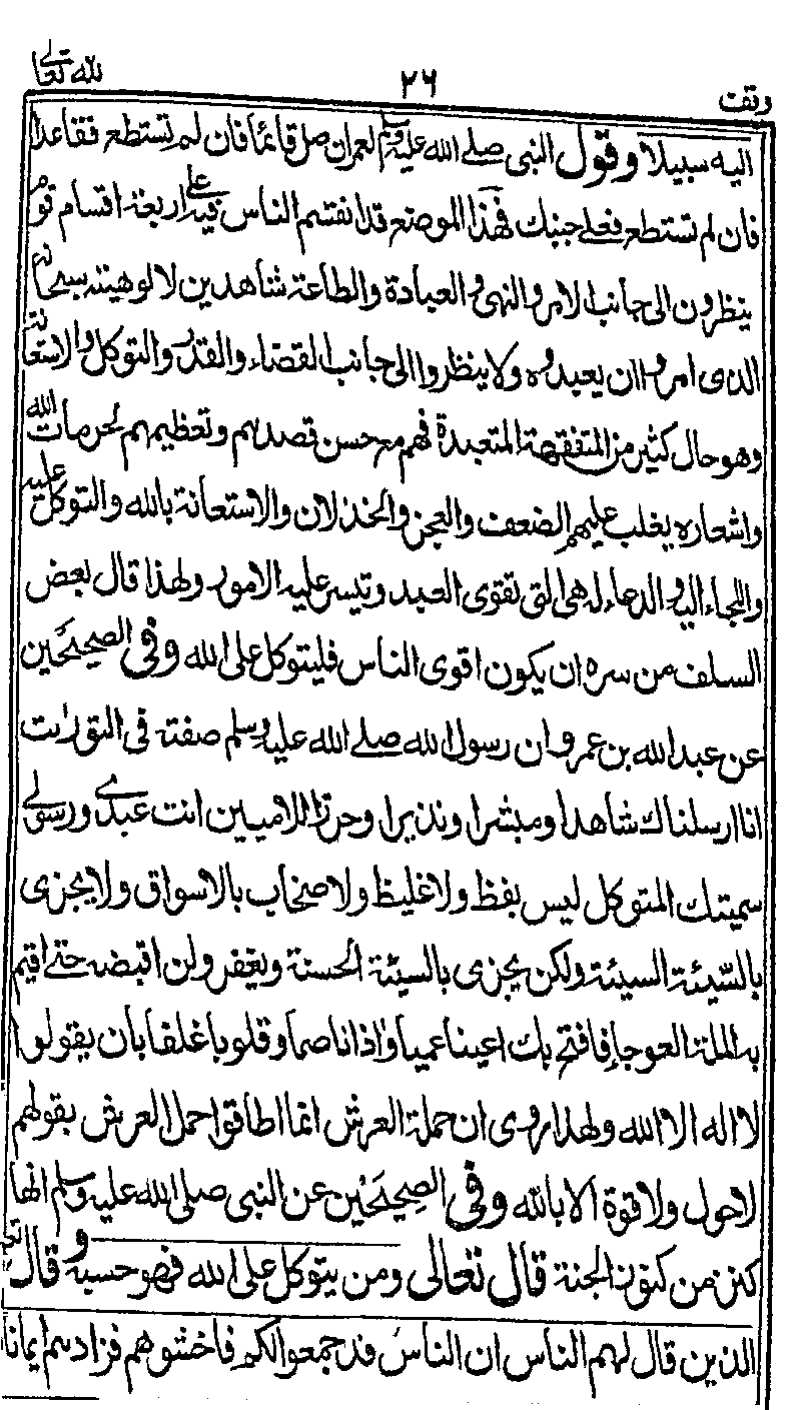 لله تعالى
٢٦
وقف
اليه سبيلا وقول النبى صلے الله عليه وسلم لعمران صل قائما فان لم تستطع فقاعدا
فان لم تستطع فعلے جنبك فهذا الموضع قد انقسم الناس فيه علے اربعة اقسام قوم
ينظرون الى جانب الامر والنهى والعبادة والطاعة شاهدين لالوهيته سبحانه
الذى امروا ان يعبدوه ولا ينظروا الى جانب القضاء والقدر والتوكل والاستعانة
وهو حال كثير من المتفقهة المتعبدة فهم مع حسن قصدهم وتعظيمهم لحرمات الله
واشعاره يغلب عليهم الضعف والعجز والخذلان والاستعانة بالله والتوكل عليه
واللجاء اليه والدعاء له هى التى تقوى العبد وتيسر عليه الامور ولهذا قال بعض
السلف من سره ان يكون اقوى الناس فليتوكل على الله وفى الصحيحين
عن عبد الله بن عمرو ان رسول الله صلے الله عليه وسلم صفته فى التورات
انا ارسلناك شاهدا ومبشرا ونذيرا وحرزا للاميين انت عبدى ورسولے
سميتك المتوكل ليس بفظ ولا غليظ ولا صخاب بالاسواق ولا يجزى
بالسيئة السيئة ولكن يجزى بالسيئة الحسنة ويغفر ولن اقبضه حتے اقيم
به الملة العوجاء فافتح بك اعينا عميا واذانا صما وقلوبا غلفا بان يقولوا
لا اله الا الله ولهذا روى ان حملة العرش انما اطاقوا حمل العرش بقولهم
لا حول ولا قوة الا بالله وفى الصحيحين عن النبى صلى الله عليه وسلم انها
كنز من كنوز الجنة قال تعالى ومن يتوكل على الله فهو حسبه وقال تعالى
الذين قال لهم الناس ان الناس قد جمعوا لكم فاخشوهم فزادهم ايمانا